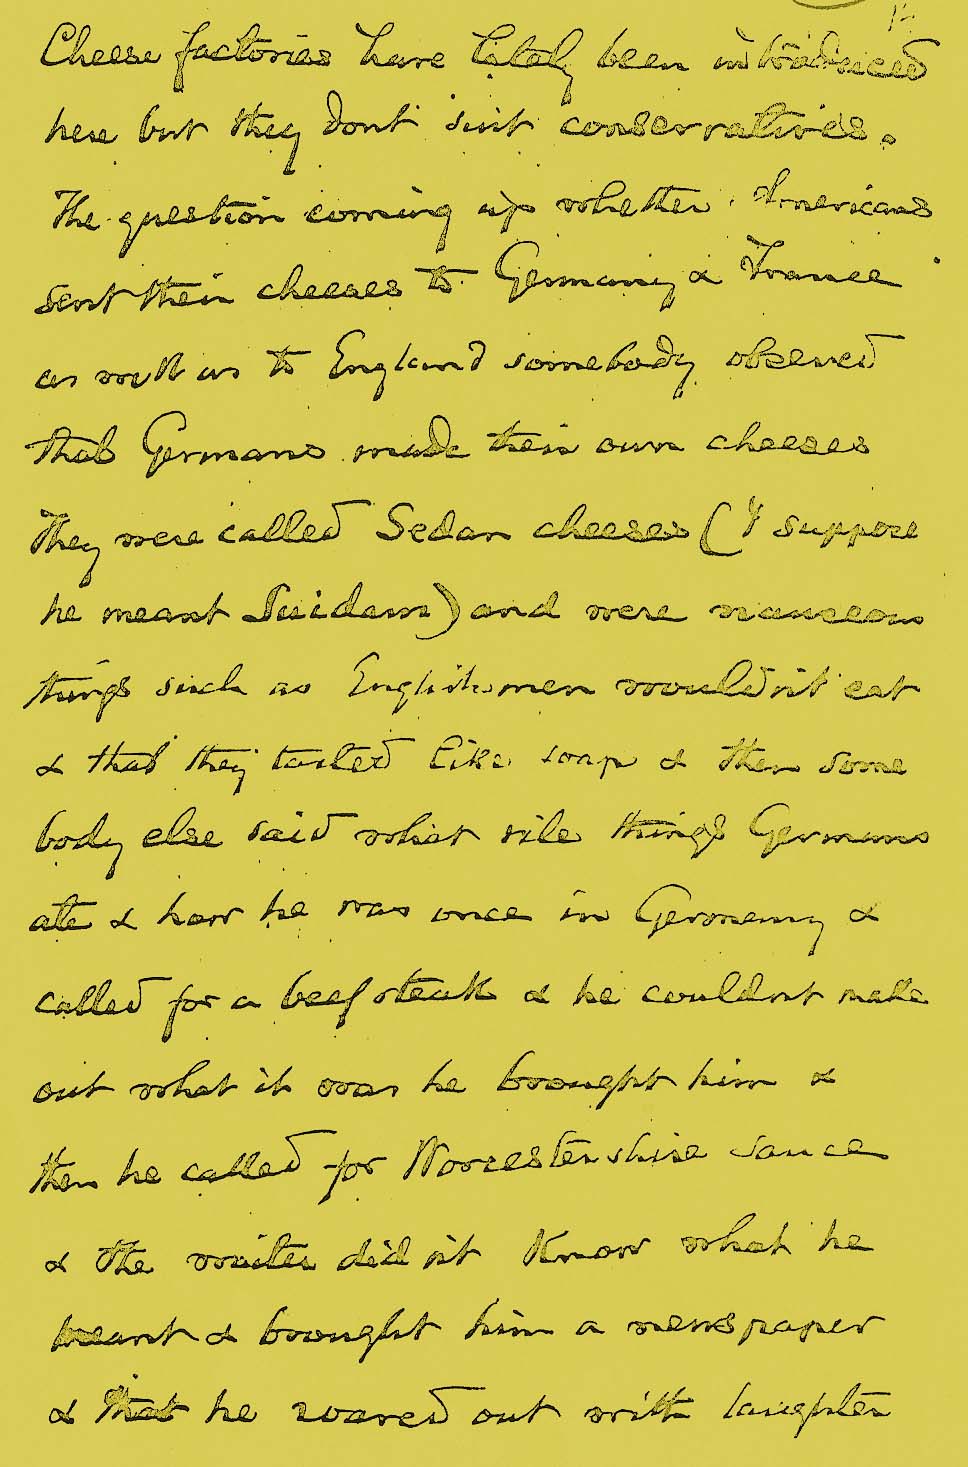 Cheese factories have lately been introduced
here but they dont suit conservatives.
The question coming up whether Americans
sent their cheeses to Germany & France
as well as to England somebody observed
that Germans made their own cheeses
They were called Sedan cheeses (I suppose
he meant) and were nauseous
things such as Englishmen wouldn't eat
& that they tasted like soap & then some
body else said what vile things Germans
ate & how he was once in Germany &
called for a beef steak & he couldnt make
out what it was he brought him &
then he called for Worcestershire sauce
& the waiter didn't know what he
meant & brought him a newspaper
& that he roared out with laughter